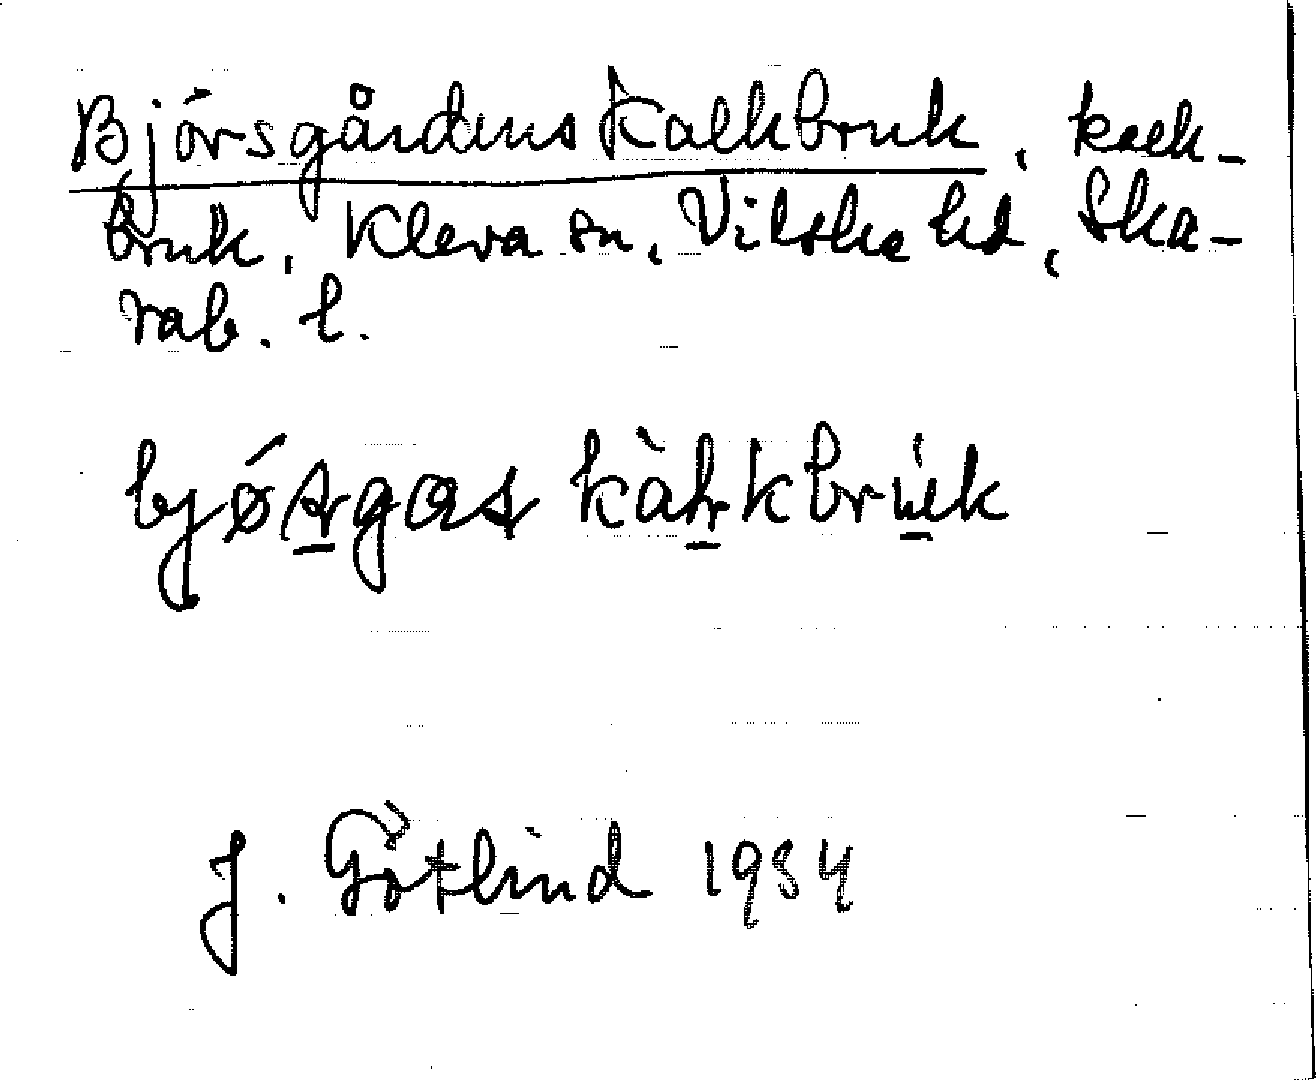 Björsgårdens Kalkbruk, kalk-
bruk, Kleva sn, Vilske hd, Ska-
rab. l.
J. Götlind 1934